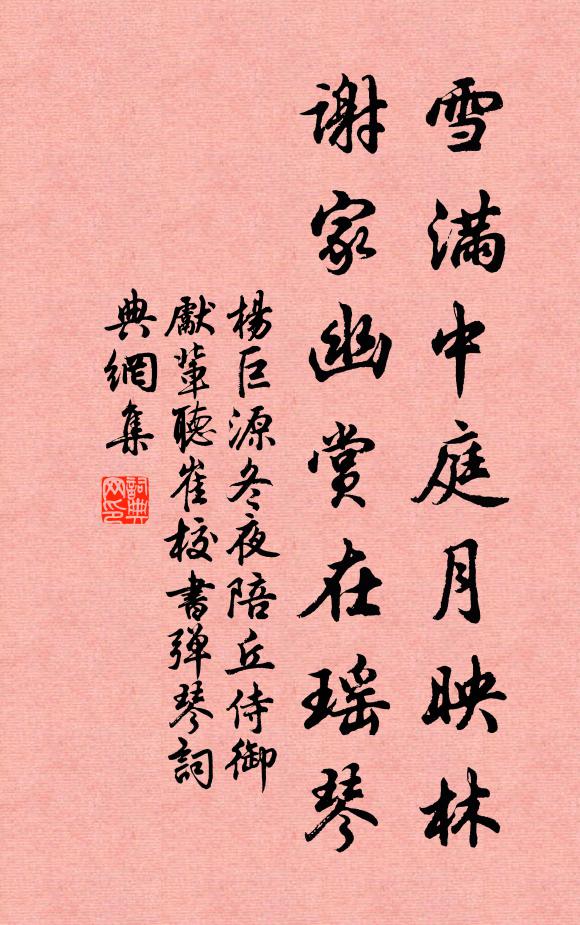 雪滿中庭月映林
謝家幽賞在瑤琴
楊巨源冬夜陪丘侍御
獻輩聽崔校書弹琴詞
典網集
詞典網印